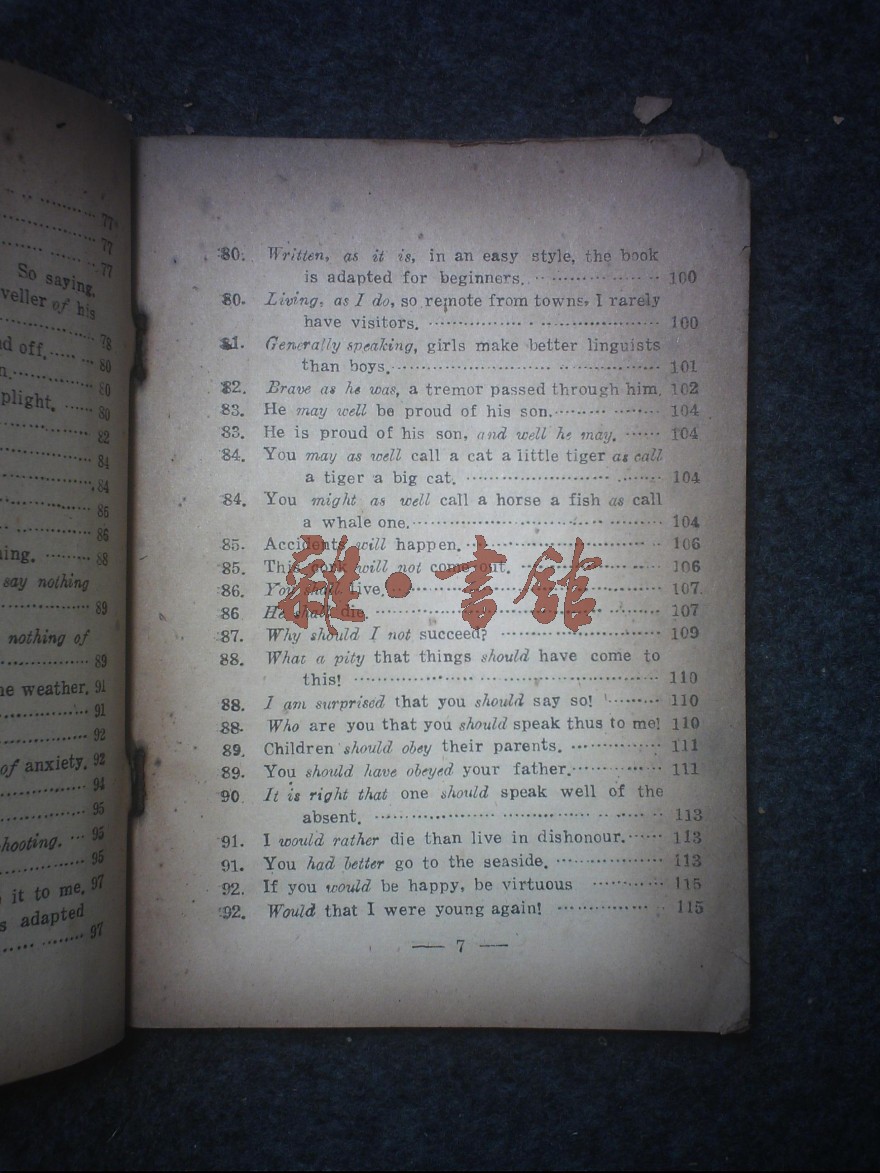 77
77
77
So saying,
veller of his
78
d off. 80
80
plight. 80
82
84
84
86
86
ing. 88
say nothing
89
nothing of
89
he weather. 91
91
92
of anxiety. 92
94
95
hooting. 95
95
it to me. 97
s adapted
97
80. Written, as it is, in an easy style, the book
is adapted for beginners. 100
80. Living, as I do, so remote from towns, I rarely
have visitors. 100
81. Generally speaking, girls make better linguists
than boys. 101
82. Brave as he was, a tremor passed through him. 102
83. He may well be proud of his son. 104
83. He is proud of his son, and well he may. 104
84. You may as well call a cat a little tiger as call
a tiger a big cat. 104
84. You might as well call a horse a fish as call
a whale one. 104
85. Accidents will happen. 106
85. This cork will not come out. 106
86. You shall live. 107
86 He shall die. 107
87. Why should I not succeed? 109
88. What a pity that things should have come to
this! 110
88. I am surprised that you should say so! 110
88. Who are you that you should speak thus to me! 110
89. Children should obey their parents. 111
89. You should have obeyed your father. 111
90 It is right that one should speak well of the
absent. 113
91. I would rather die than live in dishonour. 113
91. You had better go to the seaside. 113
92. If you would be happy, be virtuous 115
92. Would that I were young again! 115
— 7 —
雜·書館